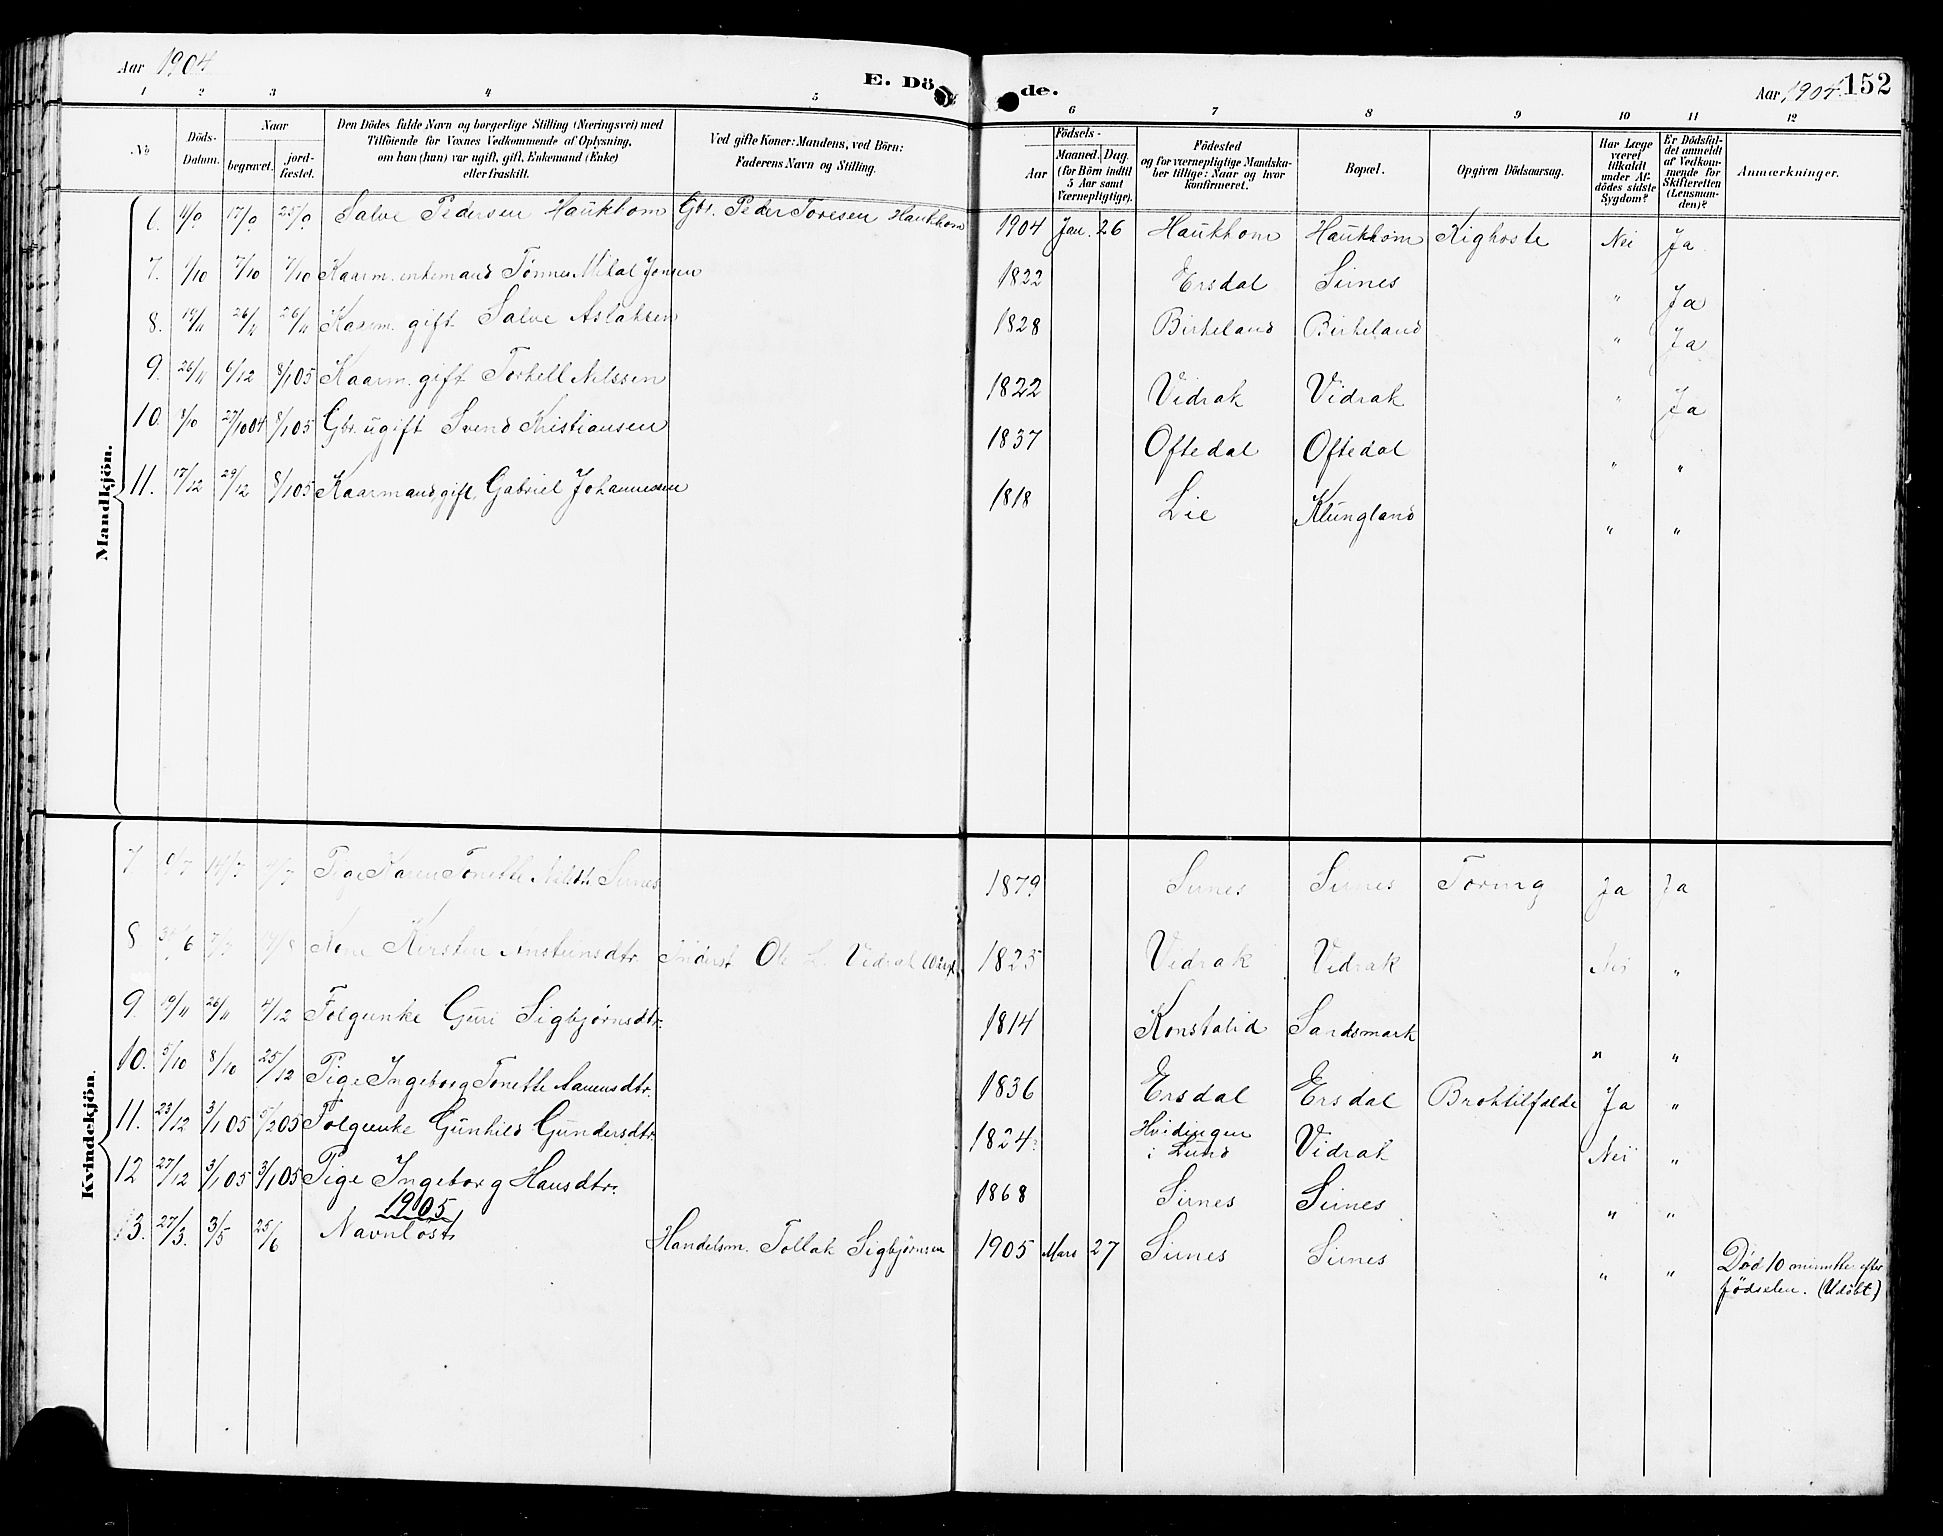 Aar 1904 E. Döde. Aar 1904 152
1 2 3 4 5 6 7 8 9 10 11 12
No Döds-Datum. Naar begravet. jordfæstet. Den Dödes fulde Navn og borgerlige Stilling (Næringsvei) med Tilföiende for Voxnes Vedkommende af Oplysning, om han (hun) var ugift, gift, Enkemand (Enke) eller fraskilt. Ved gifte Koner: Mandens, ved Börn: Faderens Navn og Stilling. Födsels- Aar Maaned. Dag. (for Börn indtil 5 Aar samt Værnepligtige). Födested og for værnepligtige Mandskaber tillige: Naar og hvor konfirmeret. Bopæl. Opgiven Dödsaarsag. Har Læge været tilkaldt under Afdödes sidste Sygdom? Er Dödsfaldet anmeldt af Vedkommende for Skifteretten (Lensmanden)? Anmærkninger.
Mandkjön.
6. 11/9 17/9 25/9 Salve Pedersen Haukhom Gbr. Peder Toresen Haukhom 1904 Jan. 26 Haukhom Haukhom Kighoste Nei Ja
7. 1/10 7/10 7/10 Kaarm. enkemand Tønnes Mikal Jonsen 1822 Ersdal Sirnes " Ja
8. 19/11 26/11 26/11 Kaarm. gift Salve Aslaksen 1828 Birkeland Birkeland " Ja
9. 26/11 6/12 8/1 05 Kaarm. gift Torkell Nilssen 1822 Vidrak Vidrak " Ja
10. 1/10 27/10 04 8/1 05 Gbr. ugift Svend Kristiansen 1837 Oftedal Oftedal " "
11. 17/12 29/12 8/1 05 Kaarmand gift. Gabriel Johannessen 1818 Lie Klungland " "
Kvindekjön.
7. 14/7 Pige Karen Tonette Sirnes 1879 Sirnes Sirnes Tæring Ja Ja
8 7/7 Kone Kirsten Ansteinsdtr. Inderst Ole L. Vidrak 1825 Vidrak Vidrak Nei "
9. 19/11 26/11 4/12 Følgenke Guri Sigbjørnsdtr. 1814 Konstalid Sandsmark " "
10. 5/10 8/10 25/12 Pige Ingeborg Tonette Aanensdtr. 1836 Ersdal Ersdal Broktilfælde Ja "
11. 23/12 3/1 05 5/2 05 Følgenke Gunhild Gundersdtr. 1824 Hvidingen i Lund Vidrak Nei "
12 27/12 3/1 05 3/1 05 Pige Ingeborg Hansdtr. 1868 Sirnes Sirnes " "
1905
13. 27/3. 3/5 25/6 Navnløst Handelsm. Tollak Sigbjørnsen 1905 Mars 27 Sirnes Sirnes " " Død 10 minutter efter
fødselen. (Udøbt)